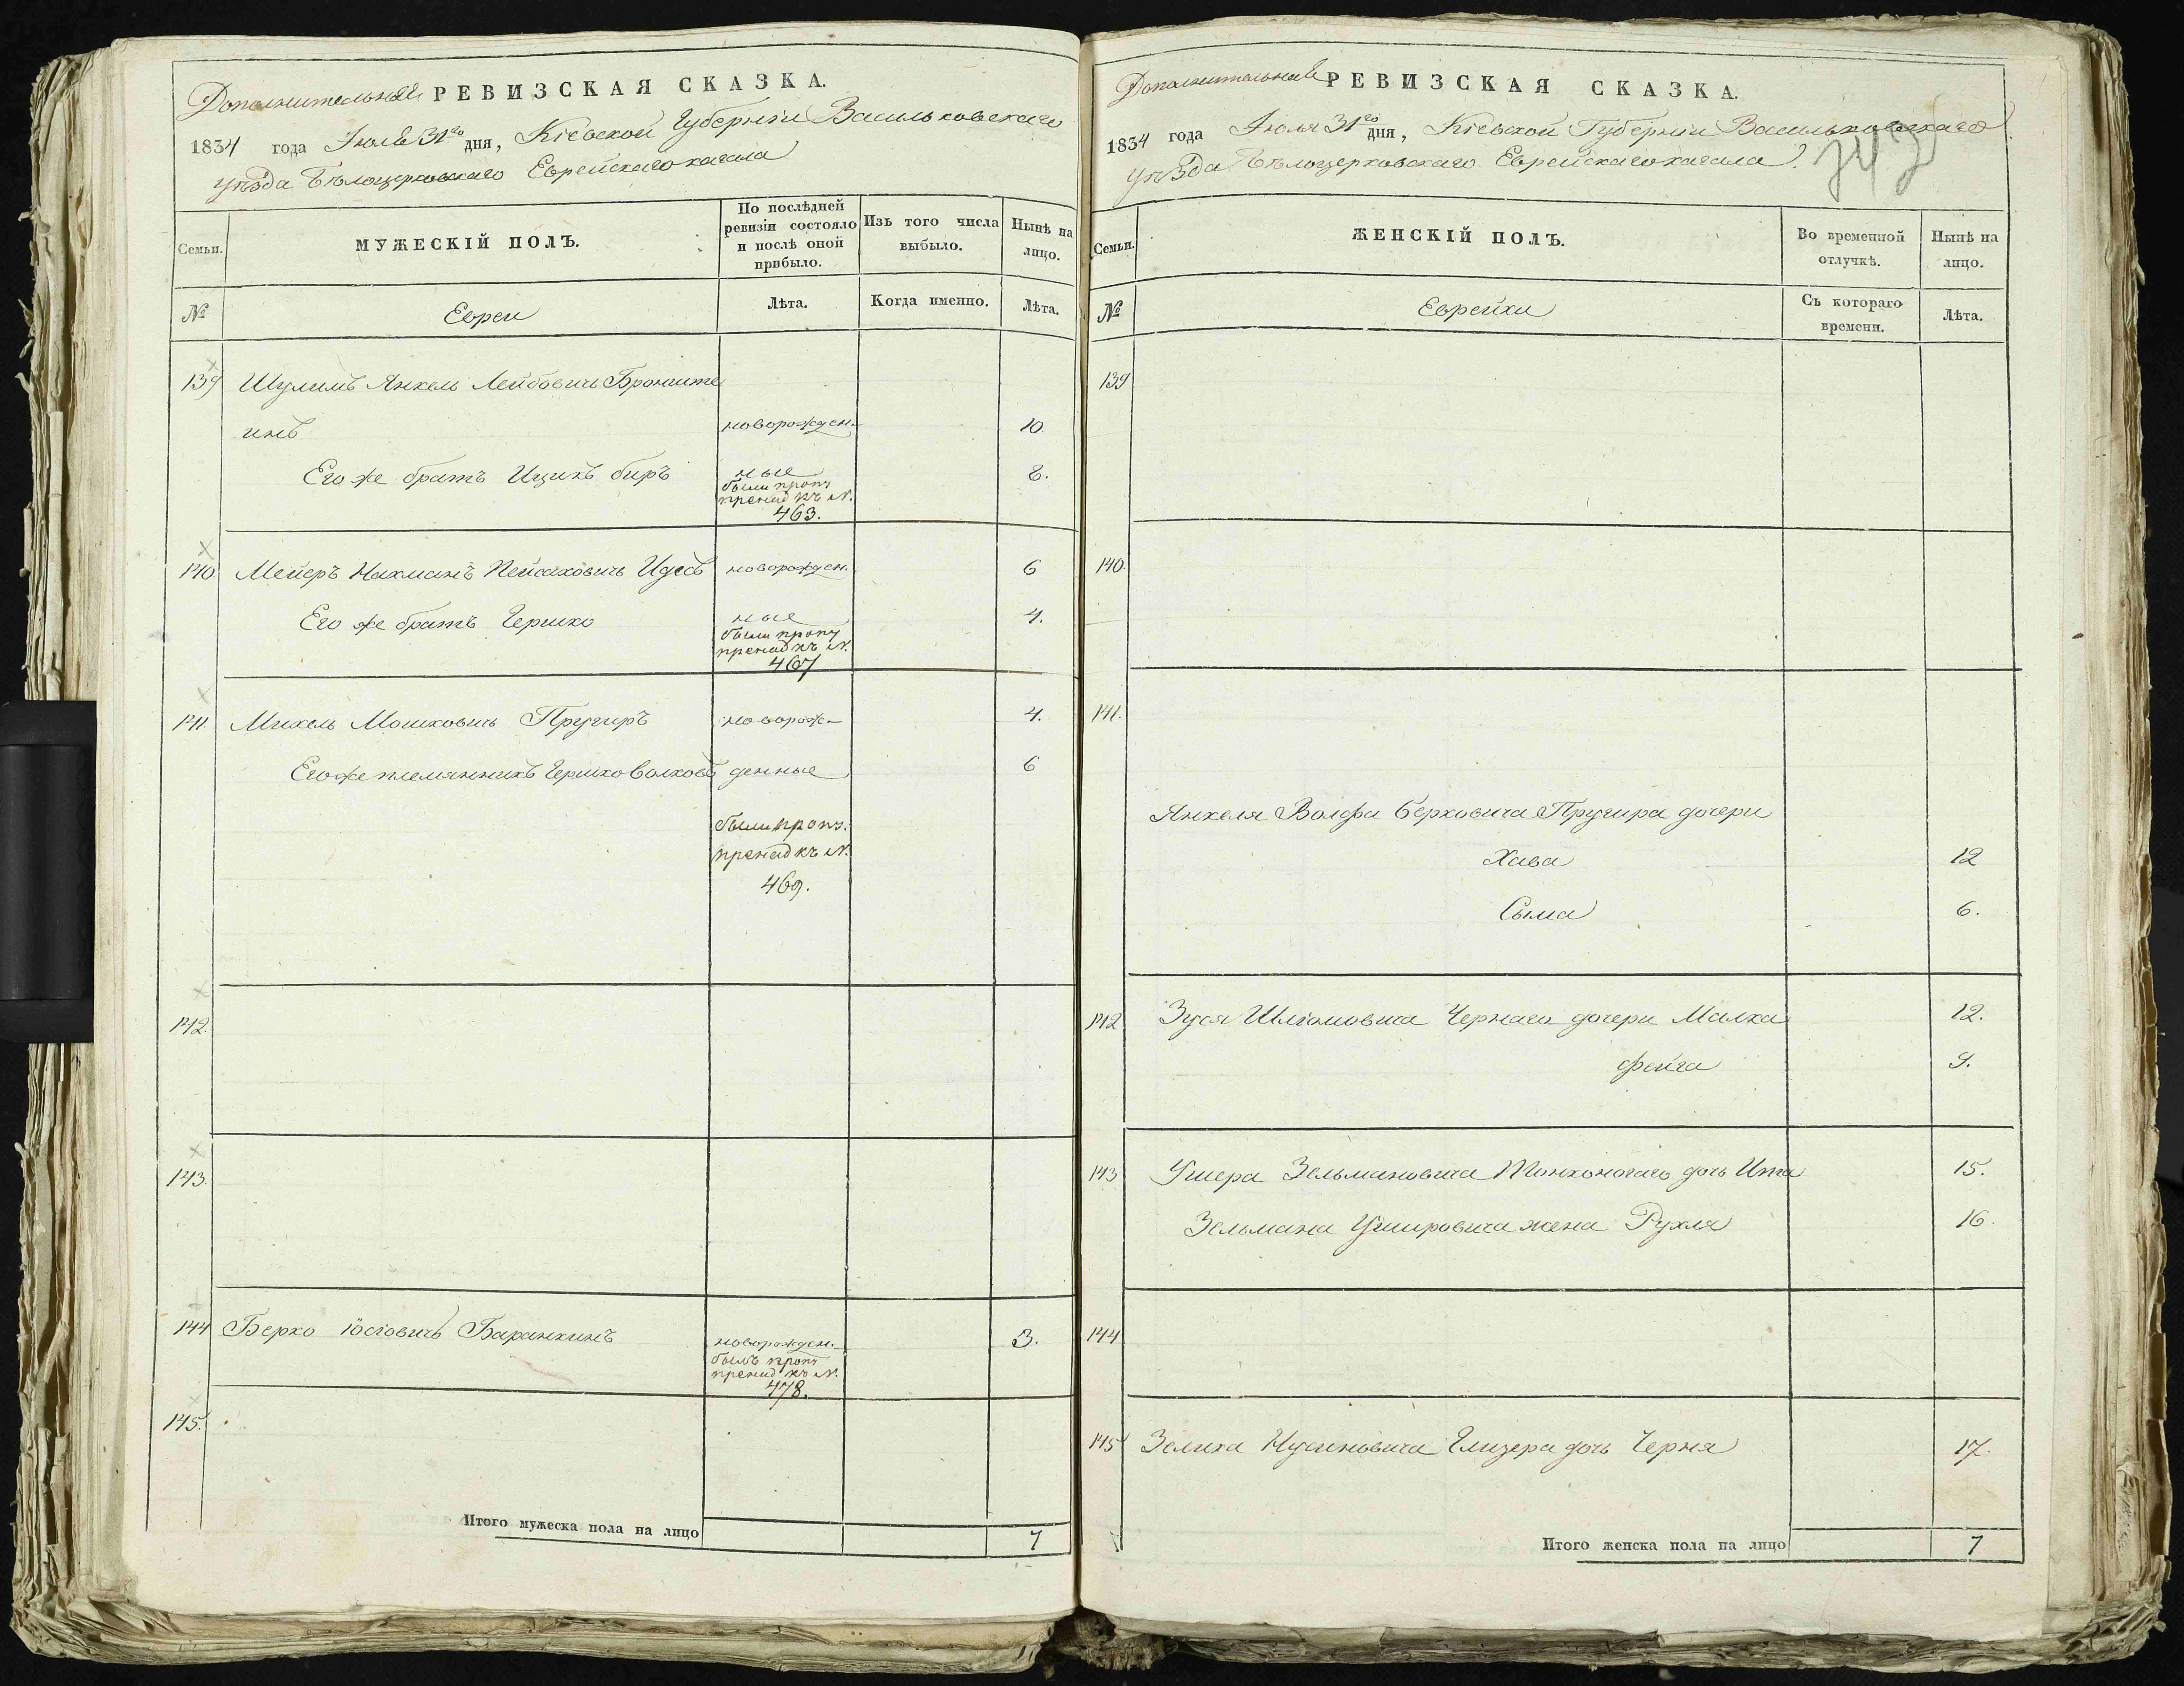 Дополнительная РЕВИЗСКАЯ СКАЗКА.
1834 года Июля 31го дня, Кіевской Губерніи Васильковскаго
уѣзда Бѣлоцерковскаго Еврейскаго кагала
Семьи.
МУЖЕСКІЙ ПОЛЪ.
По послѣдней
ревизіи состояло
и послѣ оной
прибыло.
Изъ того числа
выбыло.
Нынѣ на
лицо.
№
Евреи
Лѣта.
Когда именно.
Лѣта.
139 Шулимъ Янкель Лейбовичъ Бронште
инъ новорожден. 10
Его же братъ Ицикъ биръ ные 8.
были проп
принад къ N.
463.
140 Мейеръ Нахманъ Пейсаховичъ Идесъ новорожден. 6
Его же братъ Гершко ные 4.
были проп
принад къ N.
467
141. Михель Мошковичъ Пругиръ новорож- 4.
Его же племянникъ Гершко Волковъ денные 6
были проп.
принад къ N.
469.
142.
143.
144 Берко Іосіовичъ Баранкинъ новорожден. 3.
былъ проп
принад къ N.
478.
145.
Итого мужеска пола на лицо 7
Дополнительная РЕВИЗСКАЯ СКАЗКА.
1834 года Июля 31го дня, Кіевской Губерніи Васильковскаго
уѣзда Бѣлоцерковскаго Еврейскаго кагала.
Семьи.
ЖЕНСКІЙ ПОЛЪ.
Во временной
отлучкѣ.
Нынѣ на
лицо.
№
Еврейки
Съ котораго
времени.
Лѣта.
139
140.
141.
Янкеля Волфа Берковича Пругира дочери
Хава 12
Сыма 6.
142 Зуся Шліомовича Чернаго дочери Малка 12.
Фейга 9.
143 Ушера Зельмановича Тонконогаго дочь Ита 15.
Зельмана Ушировича жена Рухля 16.
144
145 Зелика Нусиновича Глизера дочь Черня 17.
Итого женска пола на лицо 7